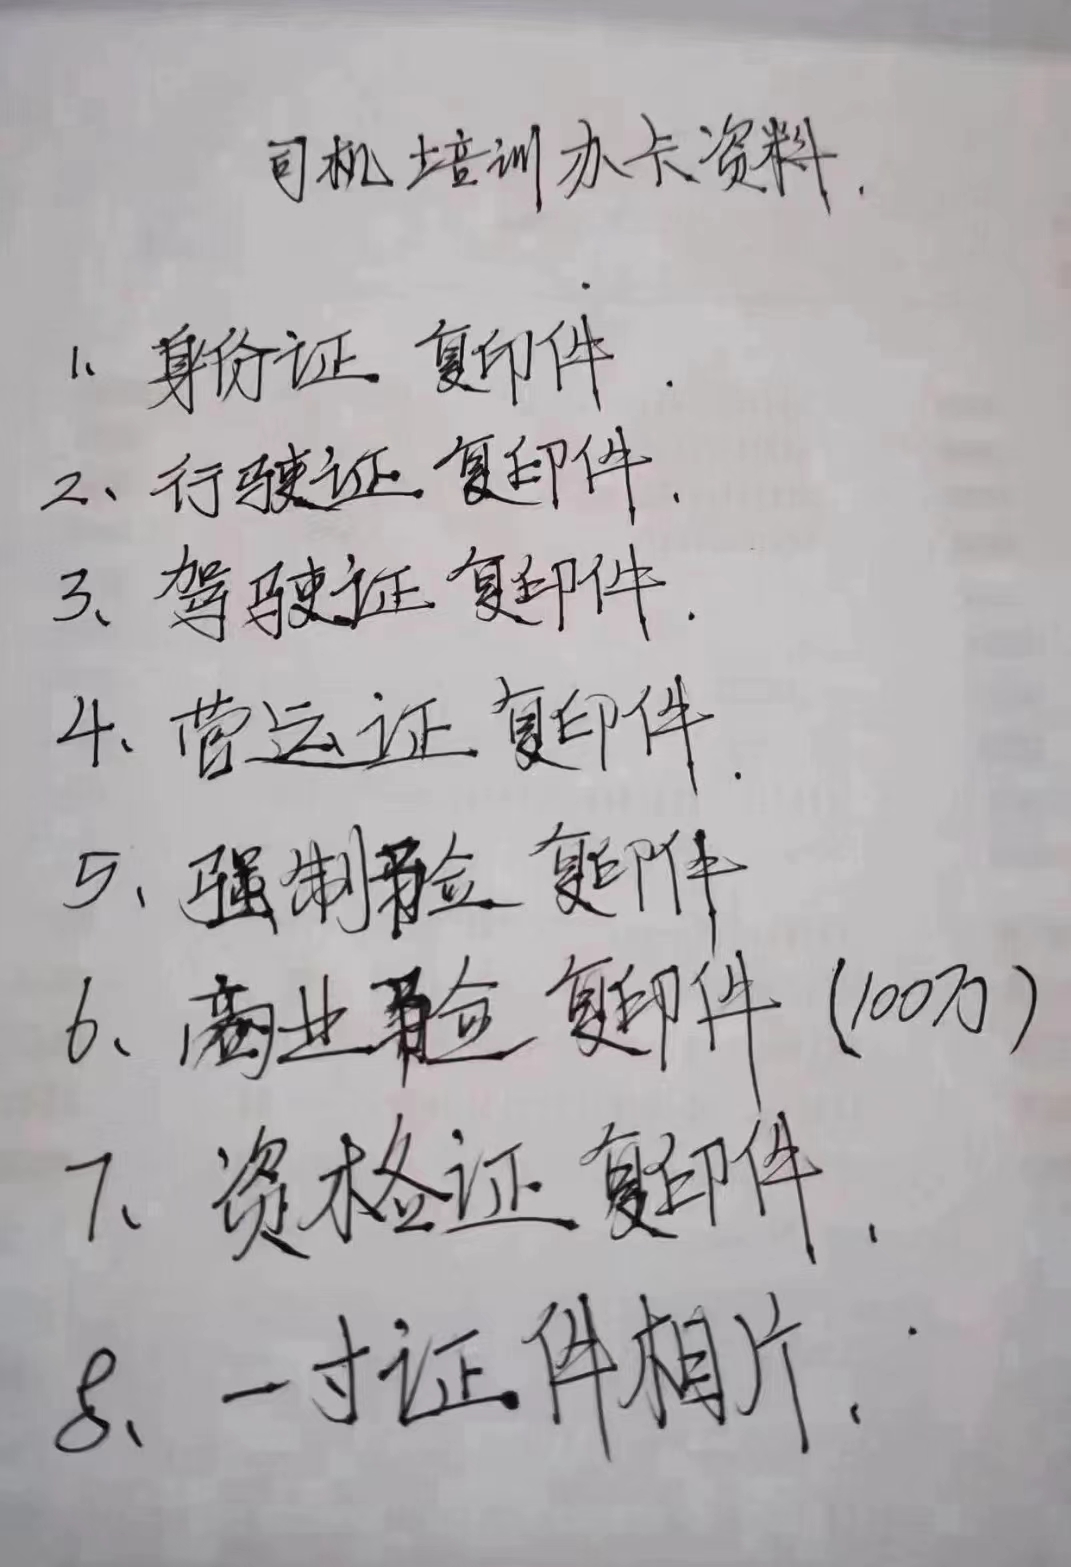 司机培训办卡资料.
1、身份证 复印件.
2、行驶证 复印件.
3、驾驶证 复印件.
4、营运证 复印件.
5、强制险 复印件
6、商业险 复印件(100万)
7、资格证 复印件.
8、一寸证件相片.